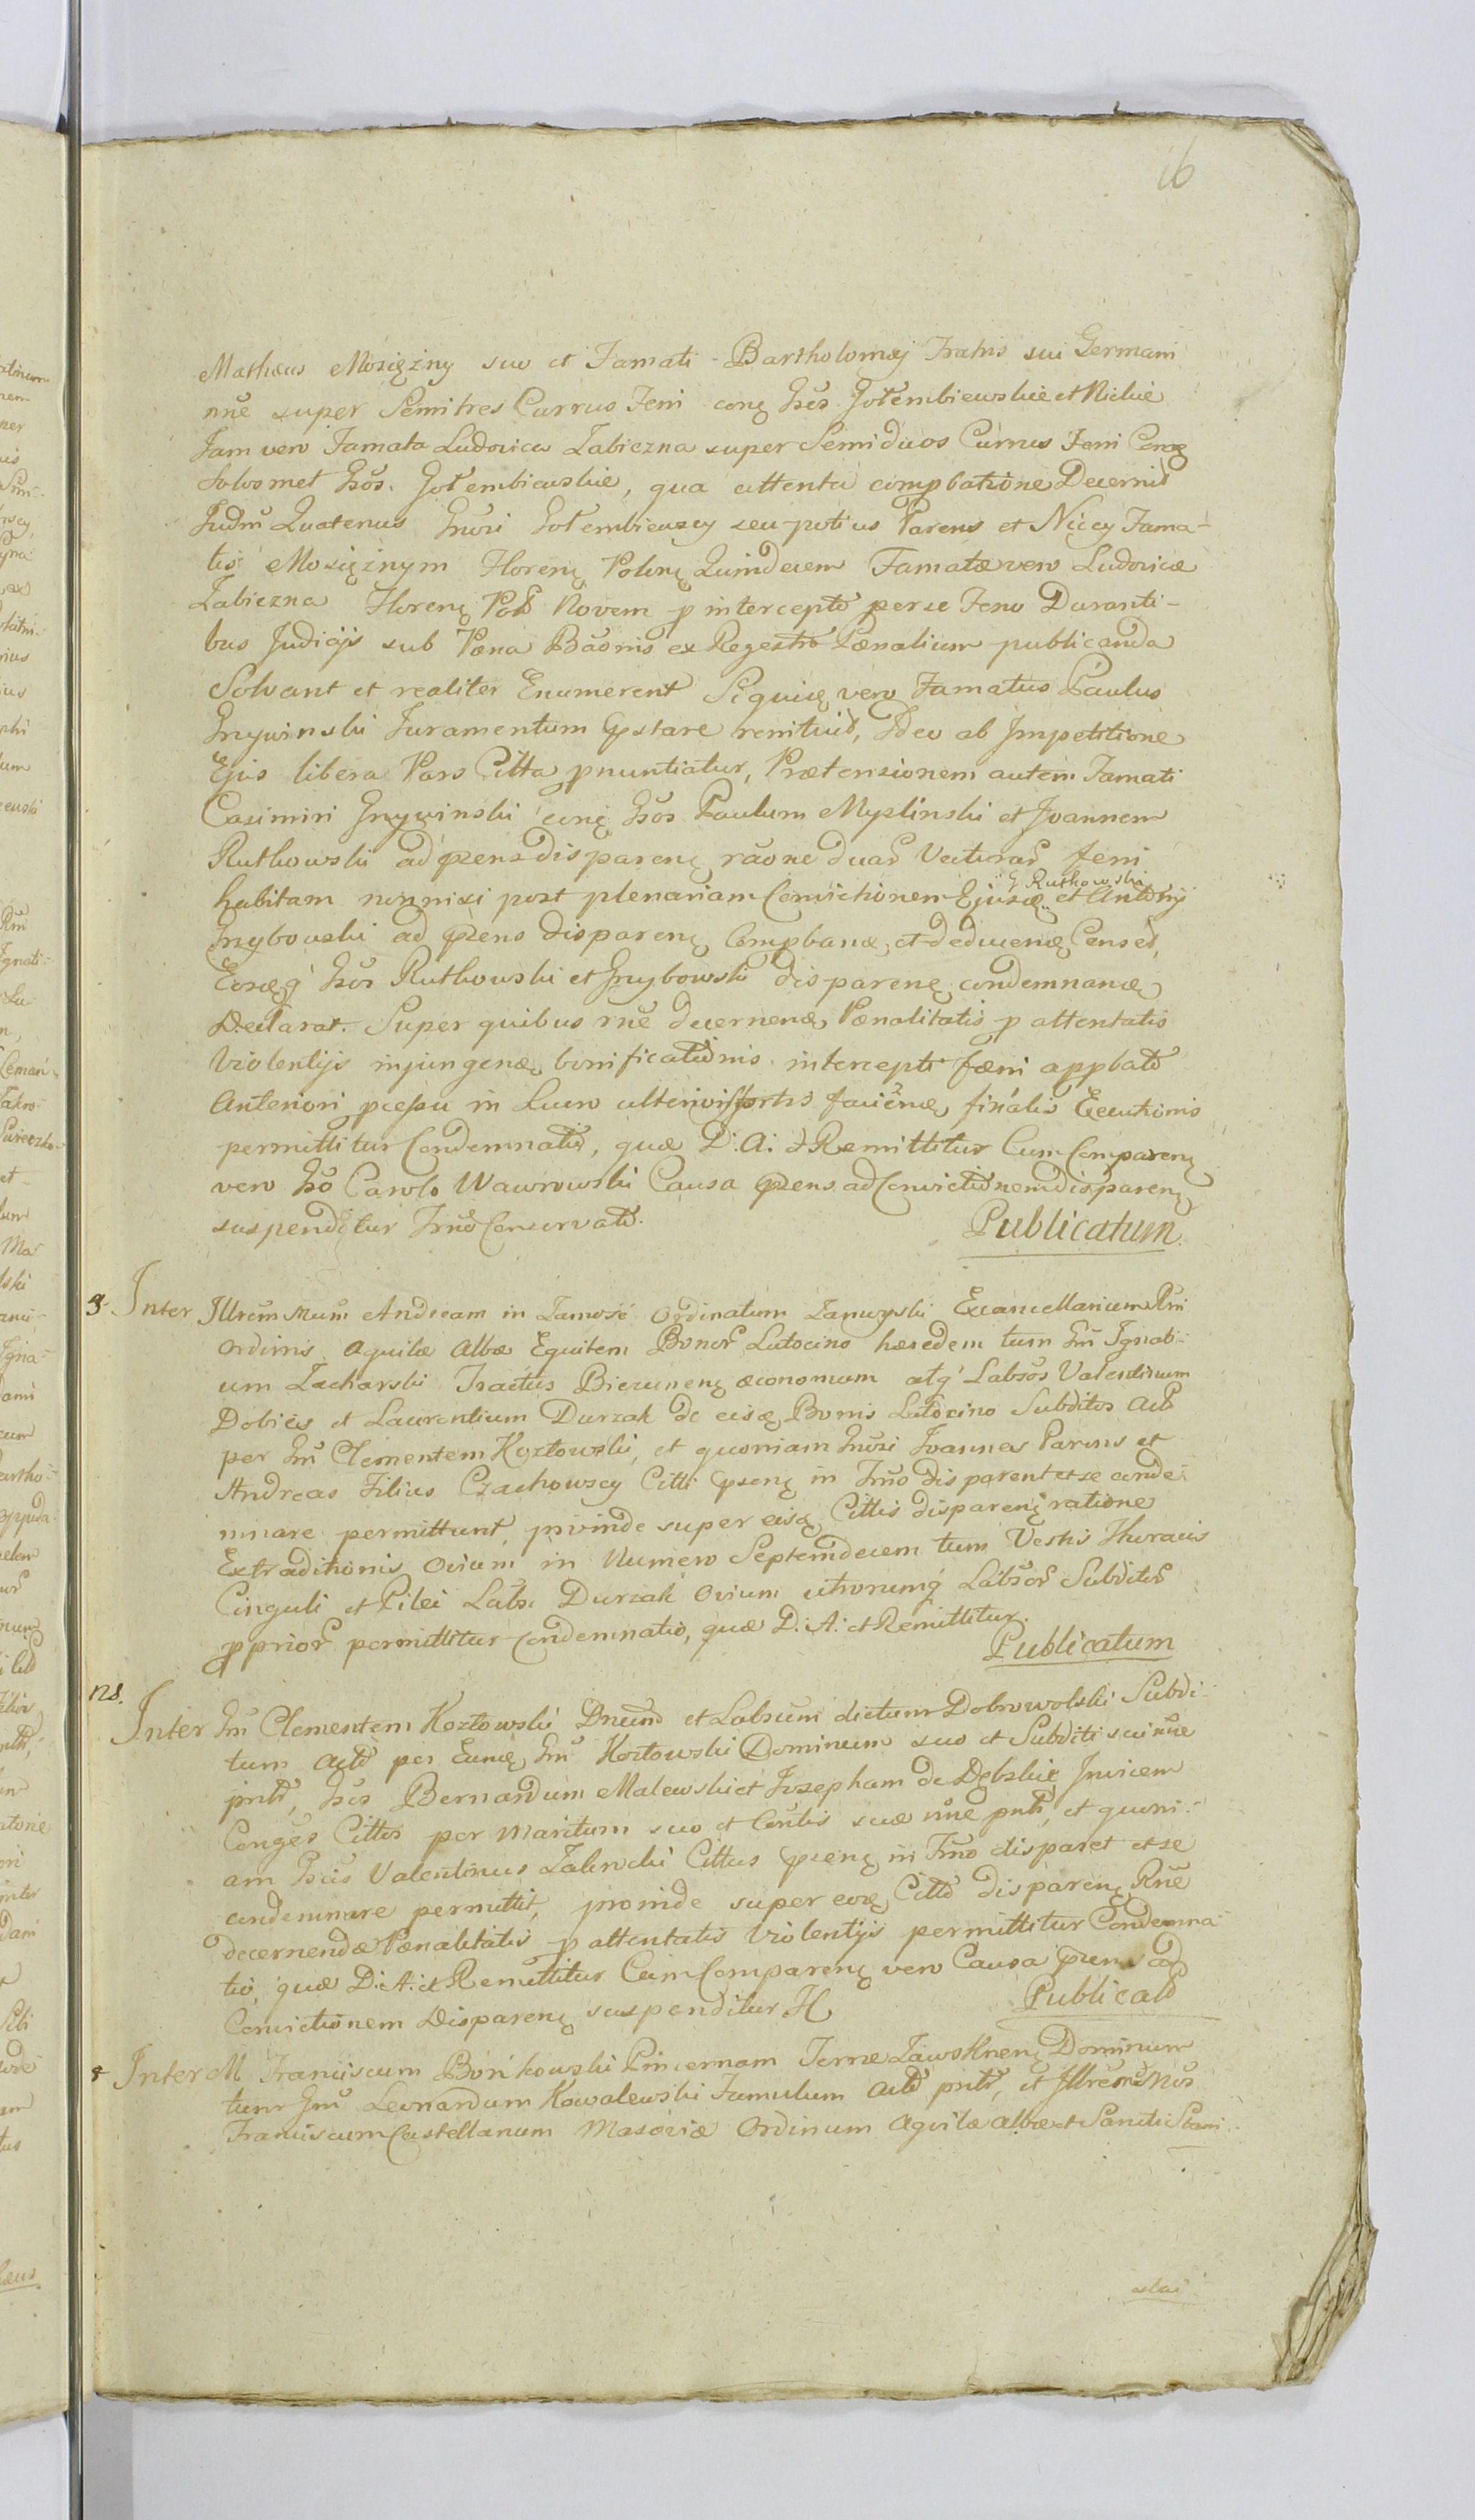 16
Matheus Mosiężny suo et Famati Bartholomæj Fratris sui Germani
nñe super Semitres Currus Feni conę Gsos Gołembiewskie et Nickie
Jam vero Famata Ludovica Zabiczna super Semiduos Currus Feni Conę
Solosmet Gsos. Gołembiewskie, qua attenta compbatione Decernit
Judm Quatenus Gnosi Gołembiewscy seu potius Parens et Niccy Fama-
tis Mosiężnym Florenę Polonę Quindecem Famatæ vero Ludovicæ
Zabiczna Florenę Pol Novem p intercepto per se Feno Duranti-
bus Judicijs sub Pæna Baonis ex Regestro Pænalium publicanda
Solvant et realiter Enumerent Siquidę vero Famatus Paulus
Grzywinski Juramentum pstare renituit, Ideo ab Impetitione
Ejus libera Pars Citta pnuntiatur, Prætensionem autem Famati
Casimiri Grzywinski conę Gsos Paulum Myslinski et Joannem
Rutkowski ad præns disparenę raone duar Vecturar feni
habitam nonnisi post plenariam Convictionem Ejusdę G Rutkowski et Antonij
Grzybowski ad præns disparenę Compbandę et deducendę Censet,
Eosdęq Gsos Rutkowski et Grzybowski disparenę condemnandę
Declarat. Super quibus rñe decernendę Pænalitatis p attentatis
Violentijs injungendę bonificationis intercepti fæni appbato
Anteriori pcessu in Lucro ulterioris fortis faciendę finalis Executionis
permittitur Condemnatio, quæ D: A: et Remittitur Cum Comparenę
vero Gso Carolo Wawrowski Causa præns ad Convictionem disparenę
suspenditur Trno Conservato.
Publicatum
3. Inter Illrem Mum Andream in Zamość Ordinatum Zamoyski Excancellarium Rni
Ordinis Aquilæ Albæ Equitem Bonor Lutocino hæredem tum Gm Ignati-
um Zacharski Tractus Biezunenę œconomum atq Labsos Valentinum
Dobies et Laurentium Durzak de eisdę Bonis Lutocino Subditos Act
per Gm Clementem Kozłowski, et quoniam Gnosi Joannes Parens et
Andreas Filius Czachowscy Citti præns in Trno disparent et se conde-
mnare permittunt, proinde super eisdę Cittis disparenę ratione
Extraditionis Ovium in Numero Septemdecem tum Vestis Thoracis
Cinguli et Pilei Labs. Durzak Ovium utrorumq Labsor Subditor
pprior permittitur Condemnatio, quæ D: A: et Remittitur.
Publicatum
ns.
Inter Gm Clementem Kozłowski Dnum et Labsum dictum Dobrowolski Subdi-
tum Act per Eundę Gm Kozłowski Dominum suo et Subditi sui nñe
pntt, Gsos Bernardum Malewski et Josepham de Dębskie Invicem
Conges Cittos per Maritum suo et Contis suæ nñe pntt, et quoni-
am Gsus Valentinus Zalenski Cittus præns in Trno disparet et se
condemnare permittit, proinde super eodę Citto disparenę Rñe
decernendæ Pænalitatis p attentatis Violentijs permittitur Condemna-
tio, quæ D: A: et Remittitur Cum Comparenę vero Causa præns ad
Convictionem Disparenę suspenditur
Publicat
Inter M Franciscum Bońkowski Pincernam Terræ Zawskrenę Dominum
tum Gm Leonardum Kowalewski Famulum Act pntt, et Illrem Mos
Franciscum Castellanum Masoviæ Ordinum Aquilæ Albæ et Sancti Stani-
slai